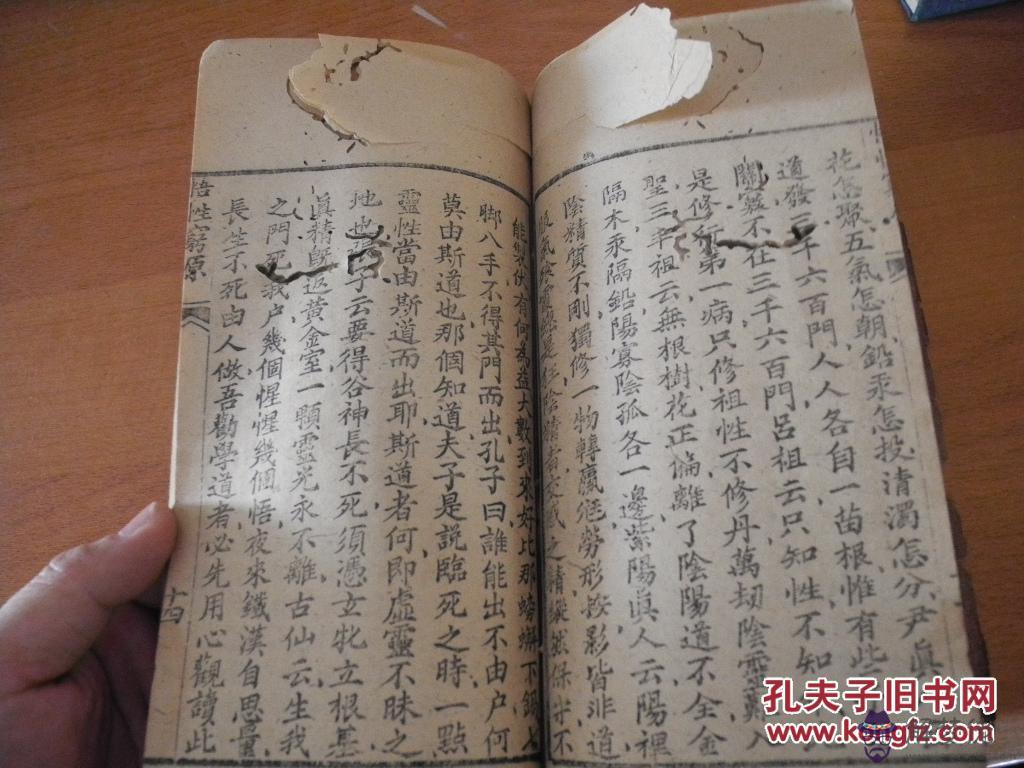 花怎聚五氣怎朝鉛汞怎投清濁怎分尹眞
道發三千六百門人人各自一苗根惟有些
關竅不在三千六百門呂祖云只知性不知
是修行第一病只修祖性不修丹萬劫陰靈難入
聖三丰祖云無根樹花正偏離了陰陽道不全金
隔木汞隔鉛陽寡陰孤各一邊紫陽眞人云陽裡
陰精質不剛獨修一物轉羸尪勞形按影皆非道
能製伏有何為益大數到來好比那螃蠏下鍋
脚八手不得其門而出孔子曰誰能出不由户何
莫由斯道也那個知道夫子是説臨死之時一點
靈性當由斯道而出耶斯道者何即虛靈不昧之
地也 子云要得谷神長不死須憑玄牝立根基
眞精旣返黃金室一顆靈光永不離古仙云生我
之門死我户幾個惺惺幾個悟夜來鐵漢自思量
長生不死由人做吾勸學道者必先用心觀讀此
悟性窮原
十四
孔夫子旧书网
www.kongfz.com